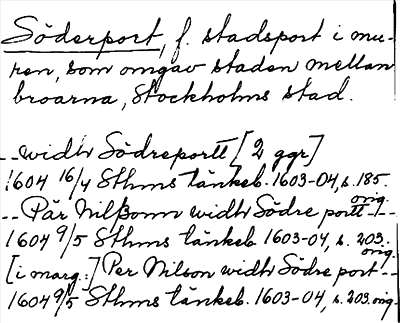 Söderport, f. stadsport i mu-
ren, som omgav staden mellan
broarna, Stockholms stad.
-- widh Södreportt [2 ggr]
1604 16/4 Sthms tänkeb. 1603-04, s. 185.
orig.
-- Pär Nilßonn widh Södre portt --
1604 9/5 Sthms tänkeb. 1603-04, s. 203.
orig.
[i marg.:] Per Nilson widh Södre port --
1604 9/5 Sthms tänkeb. 1603-04, s. 203. orig.